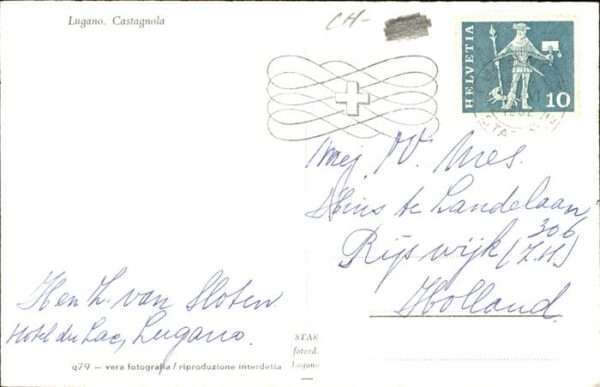 Lugano, Castagnola
CH-
HELVETIA
10
Mej. W. Mes.
Huis te Landelaan
306
Rijswijk (Z.H.)
Holland.
Hen L. van Sloten
Hotel du Lac, Lugano.
q79 — vera fotografia / riproduzione interdetta
STAR
fotoed.
Lugano